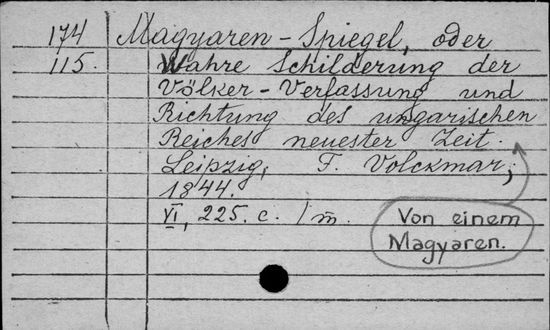 174 Magyaren-Spiegel, oder
115. Wahre Schilderung der
Völker-Verfassung und
Richtung des ungarischen
Reiches neuester Zeit.
Leipzig, F. Volckmar,
1844.
VI, 225. c. 1 m̅.
Von einem
Magyaren.